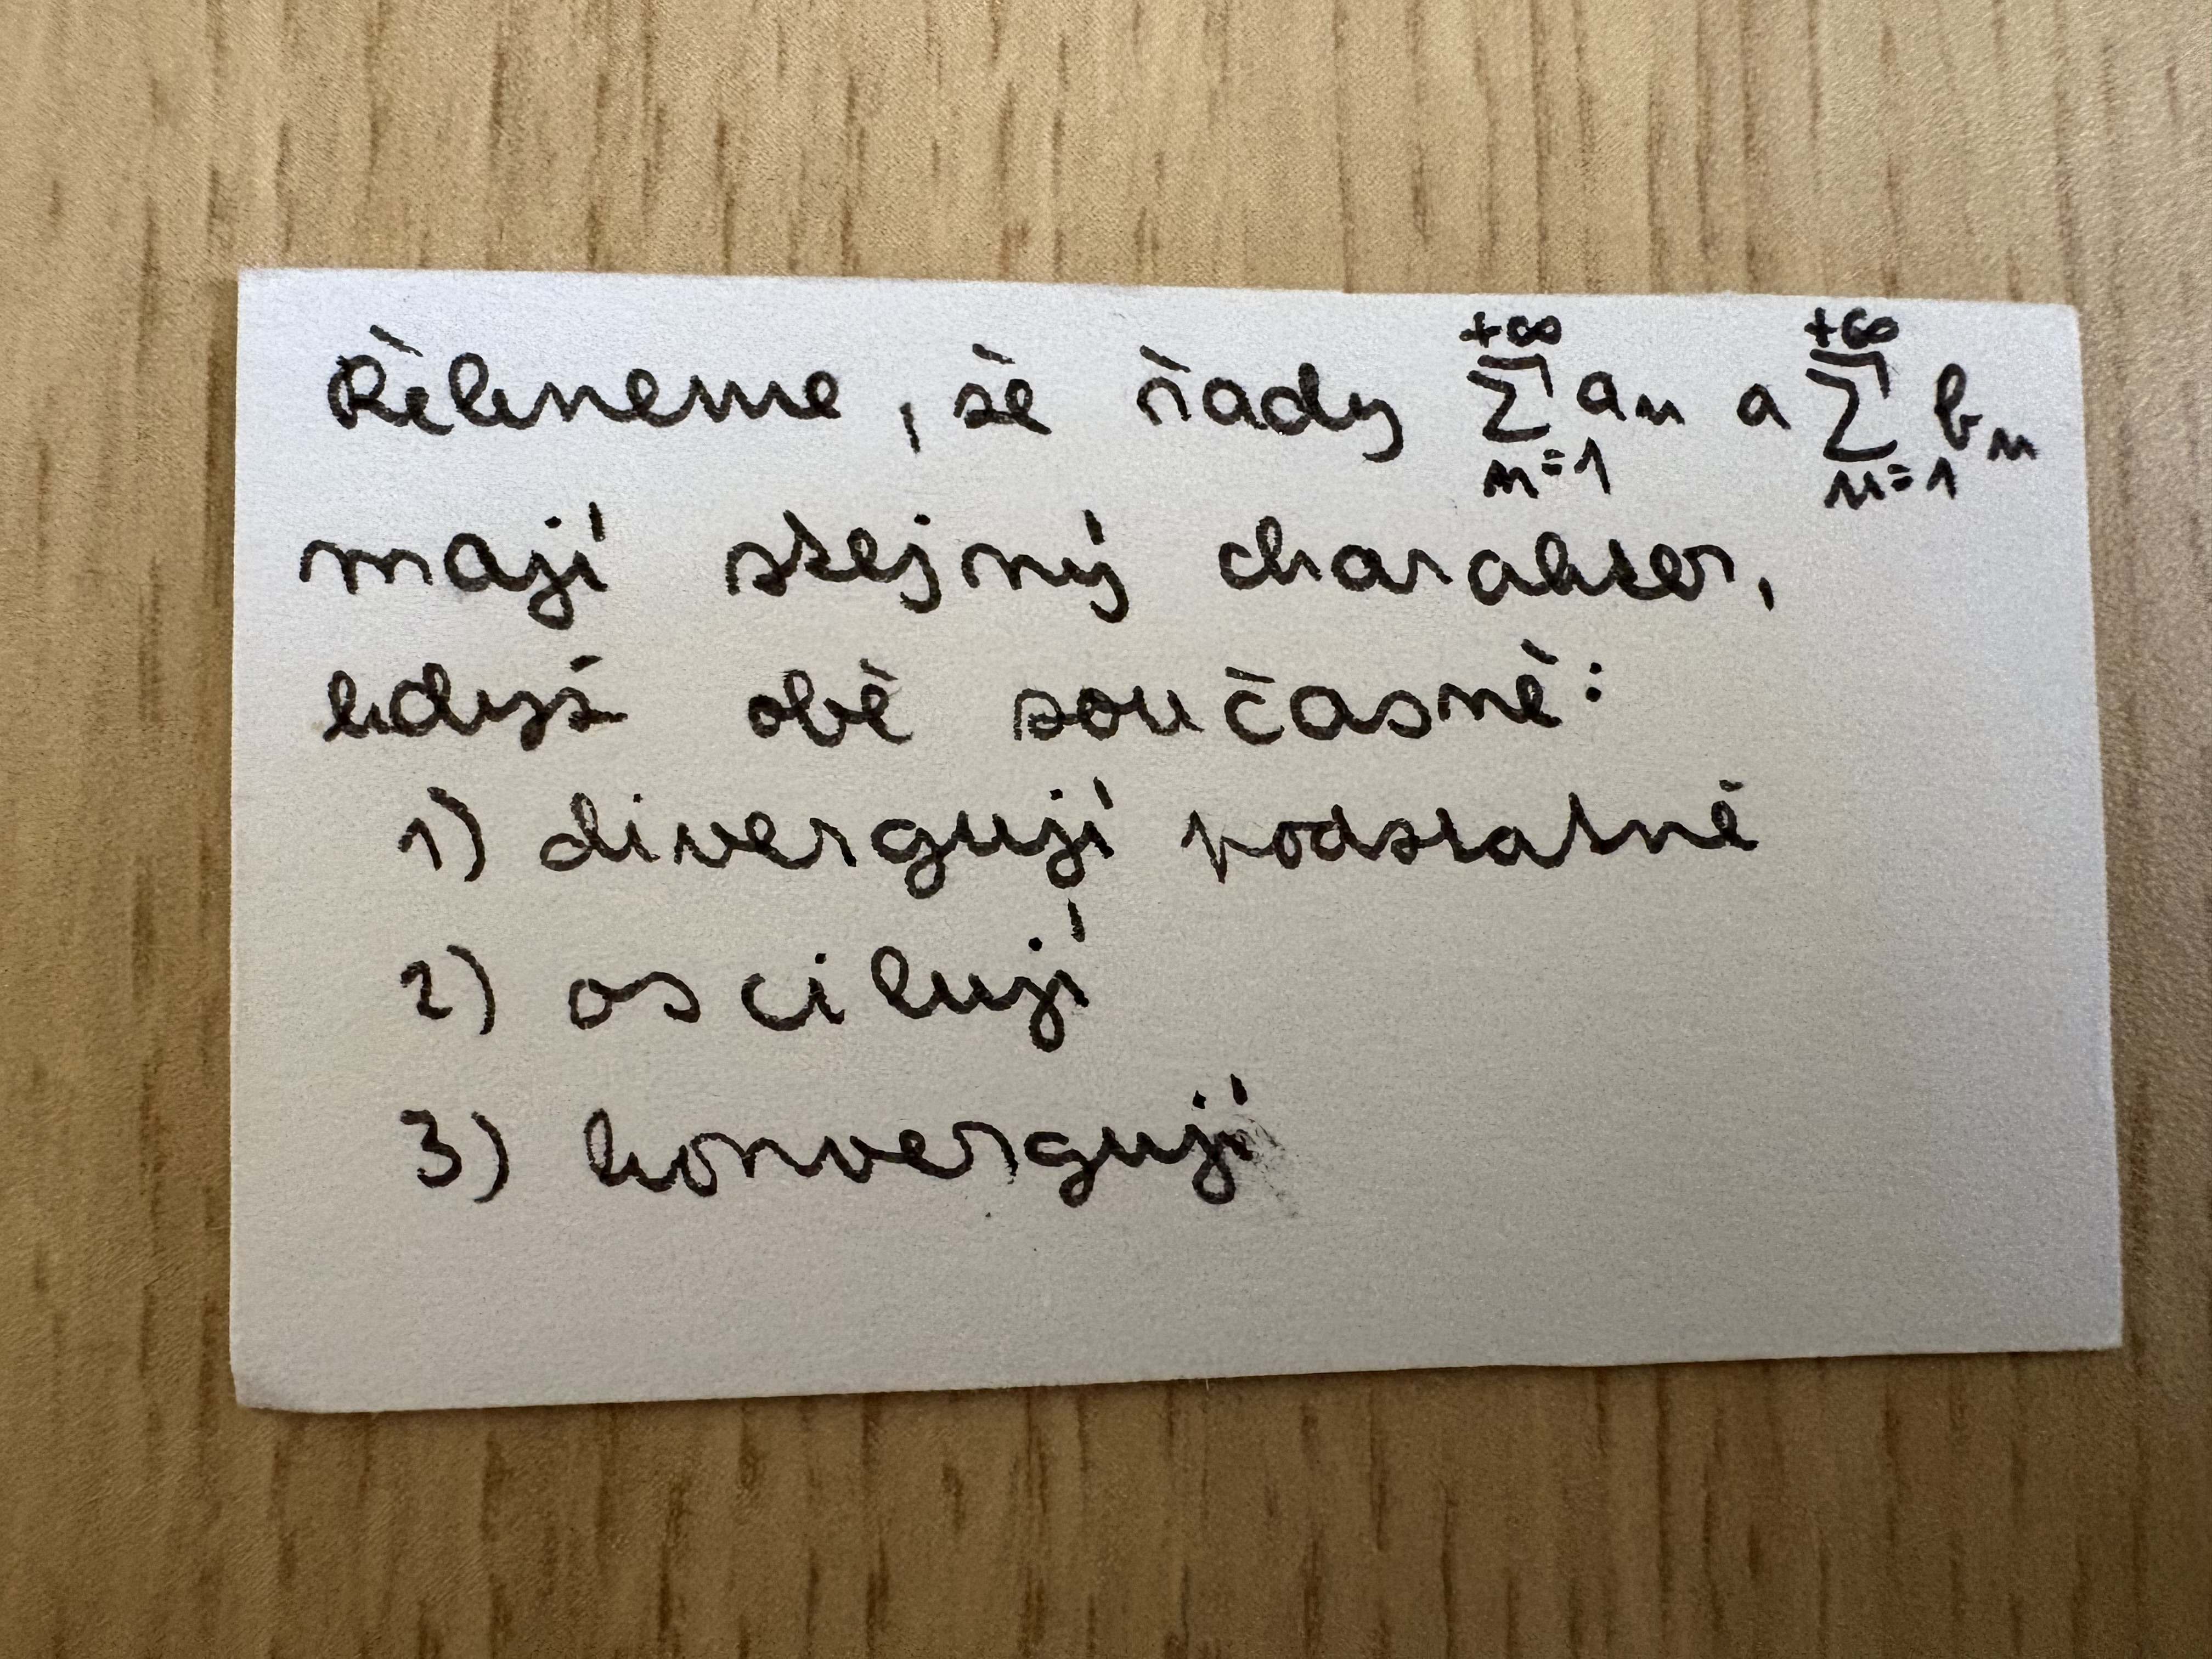 Řekneme, že řady $\sum_{n=1}^{+\infty} a_n$ a $\sum_{n=1}^{+\infty} b_n$
mají stejný charakter,
když obě současně:
1) divergují podstatně
2) oscilují
3) konvergují